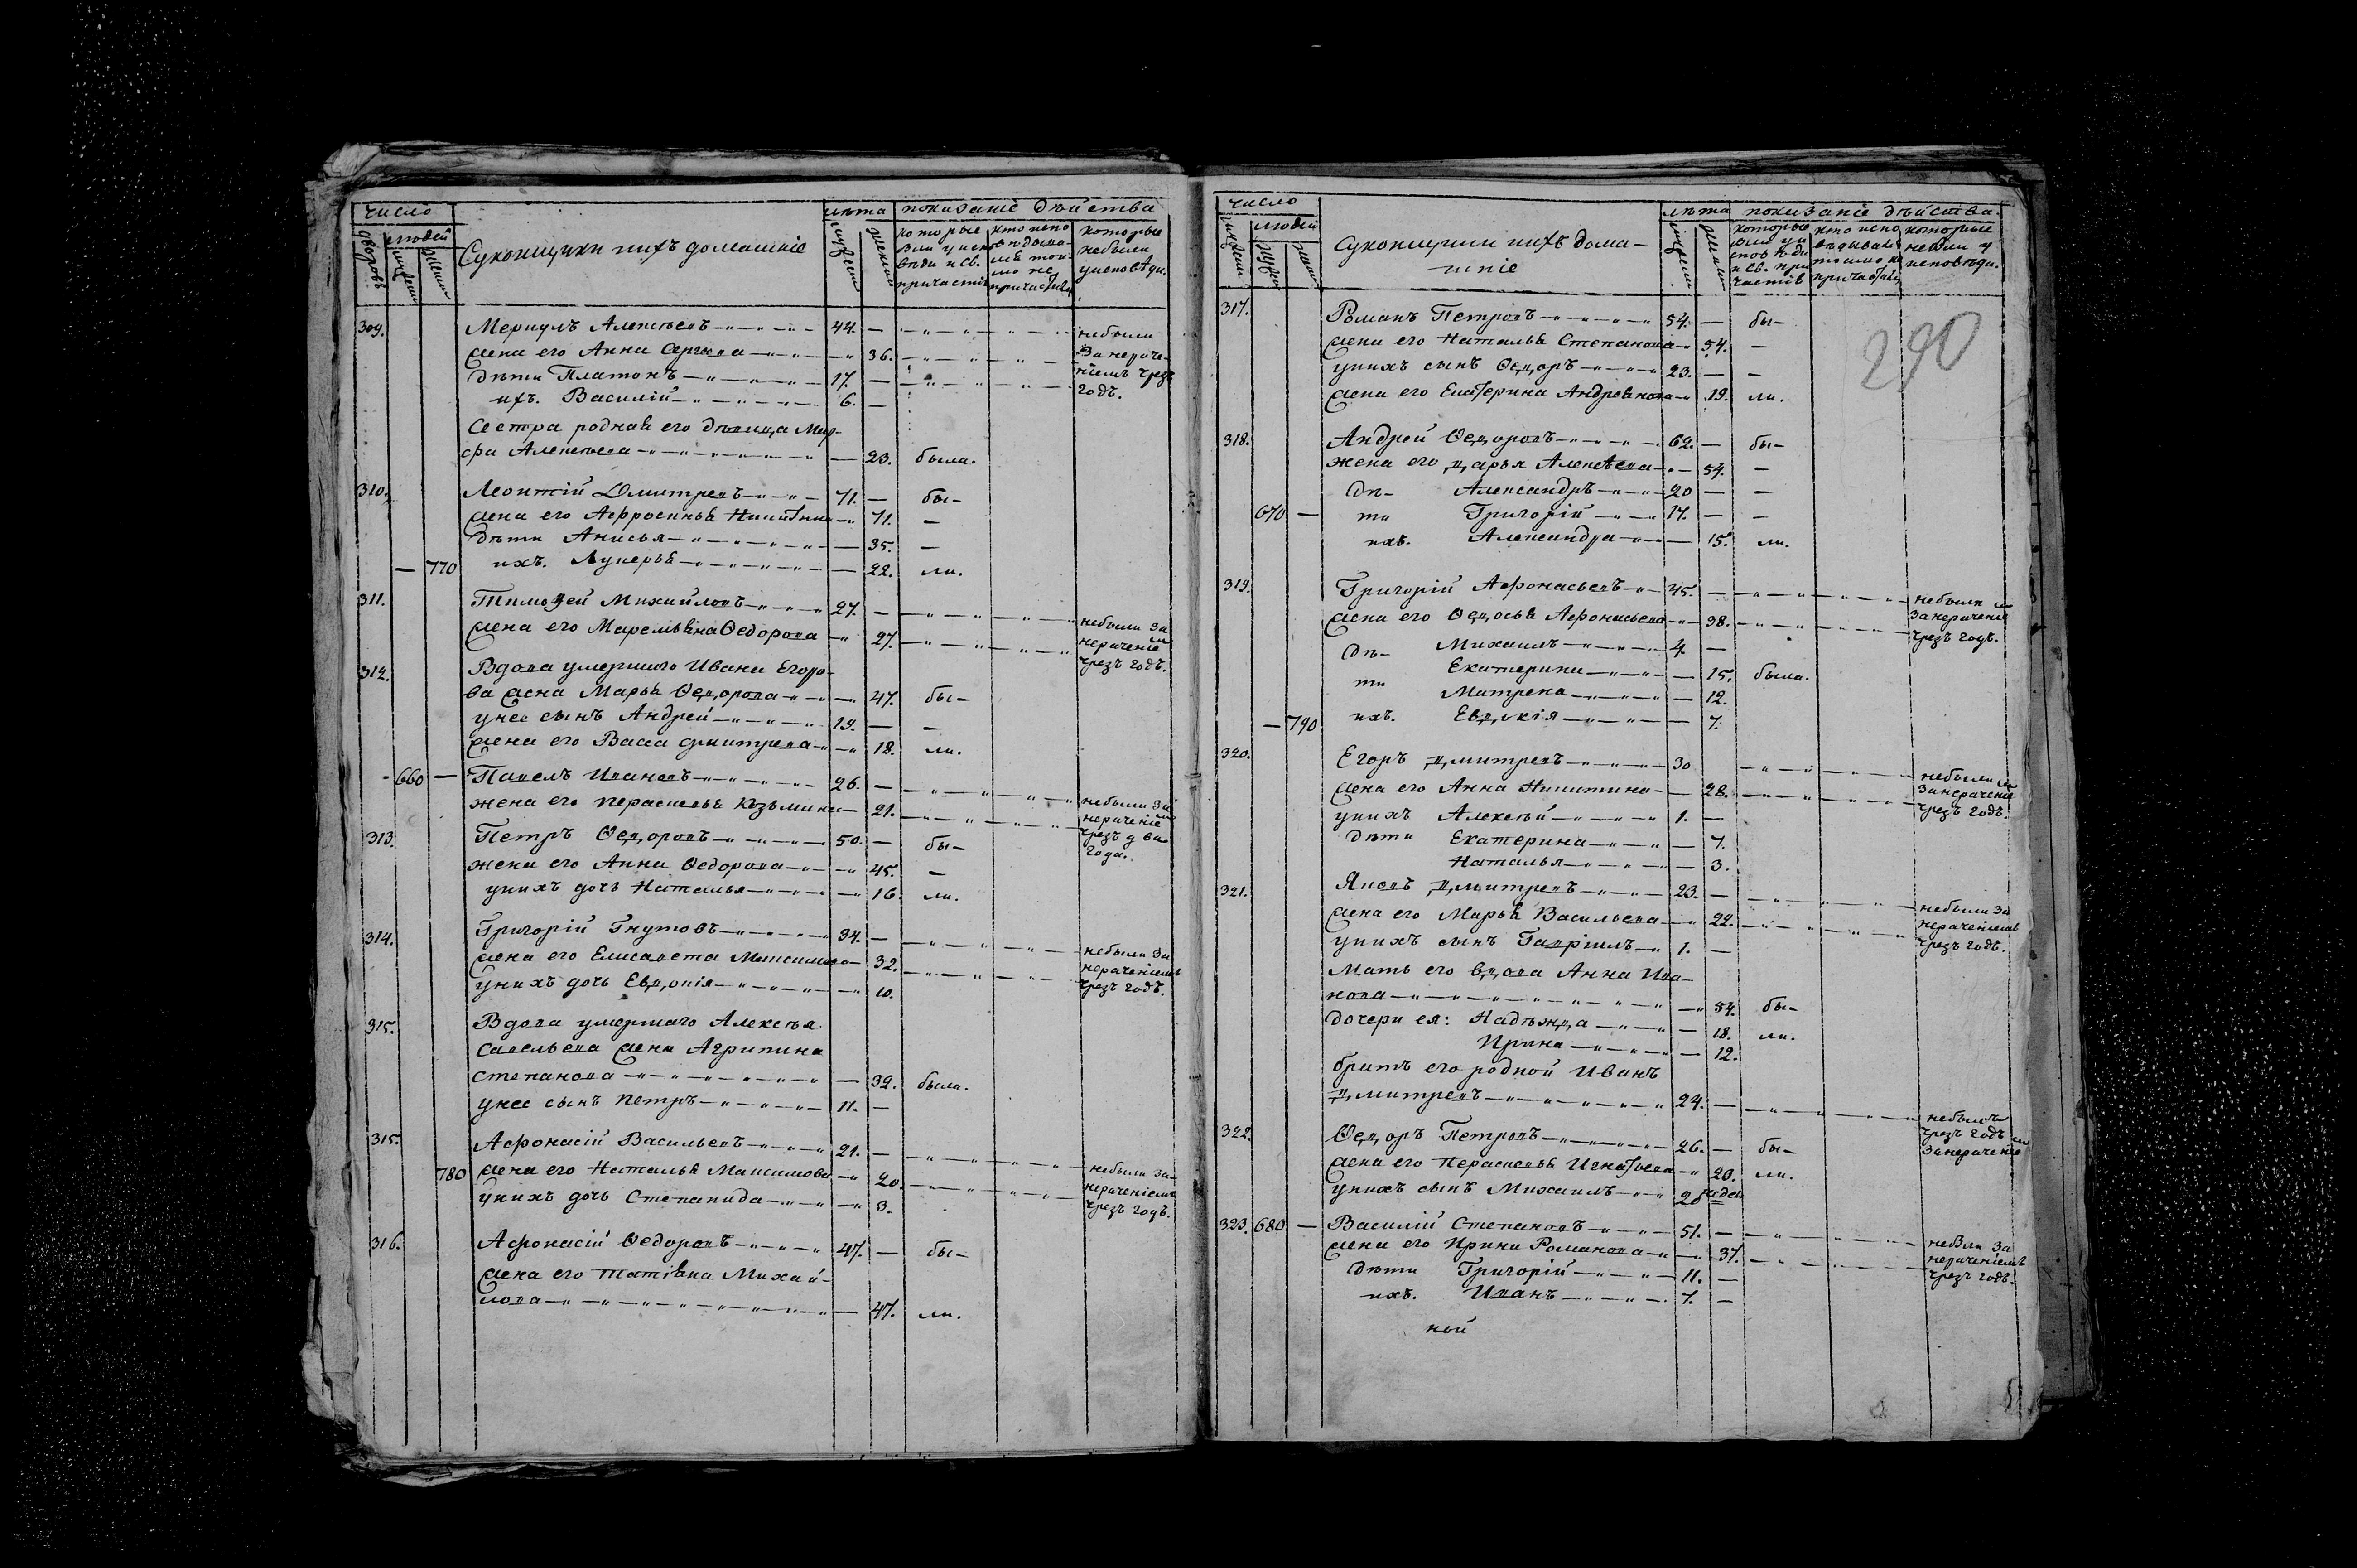 число
лѣта показаніе дѣйства
людей
дворовъ
Суконщики ихъ домашніе
которые
были у испо
вѣди и св.
причастія
кто испо
вѣдыва-
лся тол-
мо не
которые
небыли
уисповѣди.
309. Меркулъ Алексѣевъ 44. — небыли
жена его Анна Сергѣева — 36. — занераче-
дѣти Платонъ 17. — ніемъ чрезъ
ихъ. Василій 6. — годъ.
Сестра родная его дѣвица Мар-
фа Алексѣева — 23. была.
310. Леонтій Дмитревъ 71. — бы-
жена его Афросинья Никитина 71. —
дѣти Анисья — 35. —
— 770 ихъ. Лукерья — 22. ли.
311. Тимоѳей Михайловъ 27. — небыли за
жена его Маремьяна Ѳедорова 27. нераченіемъ
чрезъ годъ.
312. Вдова умершаго Ивана Егоро-
ва жена Марья Ѳедорова — 47. бы-
унее сынъ Андрей 19. — —
жена его Васса дмитрева — 18. ли.
- 660 — Павелъ Ивановъ 26. — небыли за
жена его Парасковья Козьмина — 21. нераченіемъ
чрезъ два
года.
313. Петръ Ѳедоровъ 50. — бы-
жена его Анна Ѳедорова — 45. —
унихъ дочь Наталья — 16. ли.
314. Григорій Гнутовъ 34. — небыли за
жена его Елисавета Максимова — 32. нераченіемъ
унихъ дочь Евдокія — 10. чрезъ годъ.
315. Вдова умершаго Алексѣя
Савельева жена Агрипина
Степанова — 32. была.
унее сынъ Петръ 11. —
315. Афонасій Васильевъ 21. — небыли за-
780 жена его Наталья Максимова 20. нераченіемъ
унихъ дочь Степанида — 3. чрезъ годъ.
316. Афонасій Ѳедоровъ 47. — бы-
жена его Татіяна Михай-
лова — 47. ли.
число
лѣта показаніе дѣйства.
людей
Суконщики ихъ дома-
шніе
которые
были уи
сповѣди
и св. при
частія
кто испо
вѣдывался
которые
небыли у
исповѣди.
290
317. Романъ Петровъ 54. — бы-
жена его Наталья Степанова 54. —
унихъ сынъ Ѳедоръ 23. — —
жена его Екатерина Андреянова 19. ли.
318. Андрей Ѳедоровъ 62. — бы-
жена его дарья Алексѣева — 54. —
дѣ- Александръ 20 — —
670 — ти Григорій 17. — —
ихъ. Александра — 15. ли.
319. Григорій Афонасьевъ 45. — небыли
жена его Ѳедосья Афонасьева 38. занераченіемъ
чрезъ годъ.
дѣ- Михаилъ 4. —
ти Екатерина — 15. была.
Матрена — 12.
— 790 ихъ. Евдокія — 7.
320. Егоръ дмитревъ 30 небыли
жена его Анна Никитина — 28. занераченіемъ
унихъ Алексѣй 1. — чрезъ годъ.
дѣти Екатерина — 7.
Наталья — 3.
321. Яковъ дмитревъ 23. — небыли за
жена его Марья Васильева 22. нераченіемъ
унихъ сынъ Гавріилъ 1. — чрезъ годъ.
Мать его вдова Анна Ива-
нова — 54. бы-
дочери ея: Надѣжда — 18. ли.
Ирина — 12.
братъ его родной Иванъ
дмитревъ 24. — небылъ
чрезъ годъ
занераченіемъ
322. Ѳедоръ Петровъ 26. — бы-
жена его Парасковья Игнатьева 20. ли.
унихъ сынъ Михаилъ 20 недел
323. 680 — Василій Степановъ 51. — небли за
жена его Ирина Романова — 37. нераченіемъ
дѣти Григорій 11. — чрезъ годъ.
ихъ. Иванъ 7. —
ной